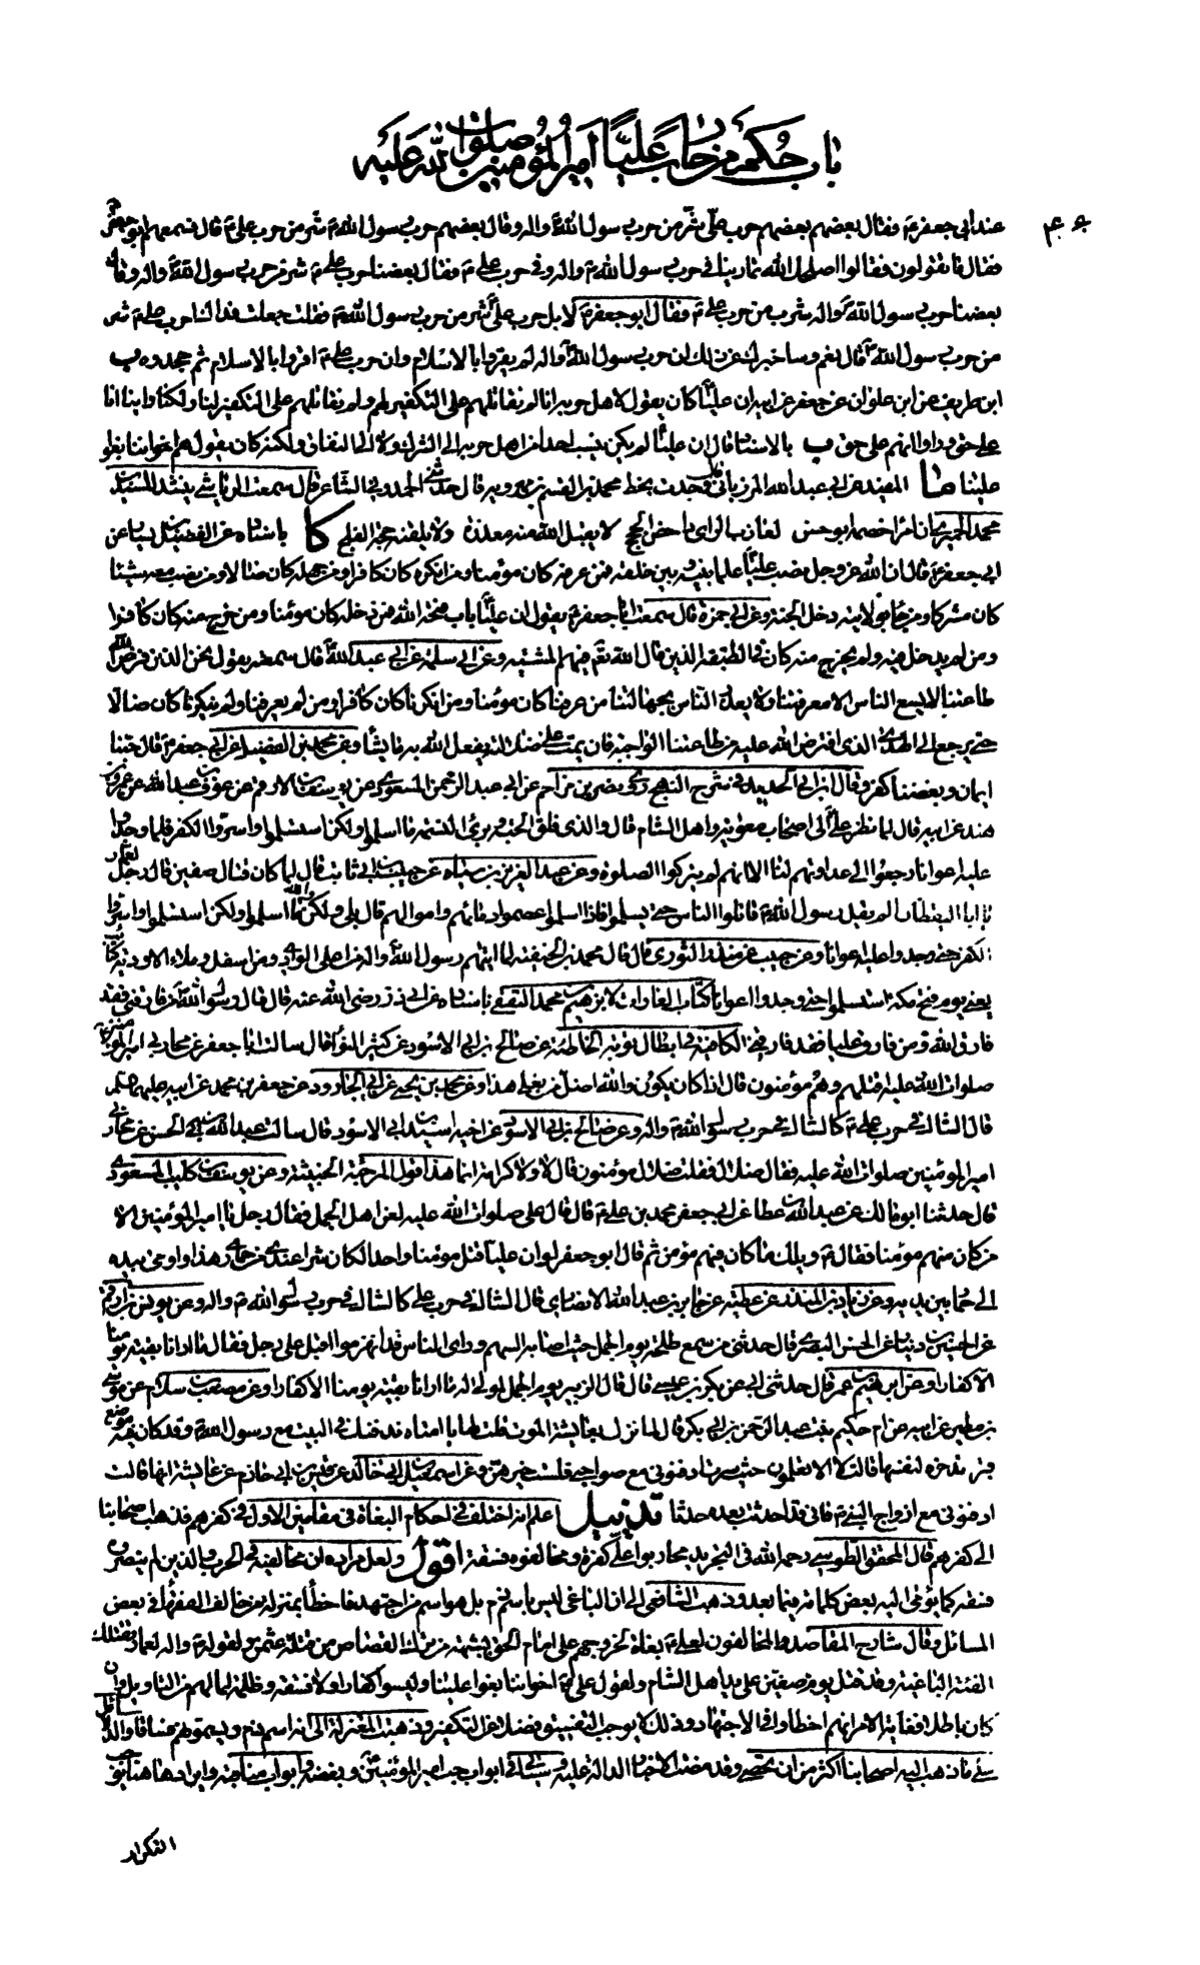 باب حكم من حارب عليّاً أمير المؤمنين صلوات الله عليه
عند أبي جعفر م فقال بعضهم بعضهم حرب علي شر من حرب رسول الله والد وقال بعضهم حرب رسول الله م شر من حرب علي م قال فسمعهم أبو جعفر م
فقال ما تقولون فقالوا اصلحك الله تمارينا في حرب رسول الله م واله وفي حرب علي م فقال بعضنا حرب علي م شر من حرب رسول الله واله وقال
بعضنا حرب رسول الله واله شر من حرب علي م فقال ابو جعفر م لا بل حرب علي شر من حرب رسول الله م فقلت جعلت فداك احرب علي م شر
من حرب رسول الله قال نعم وساخبرك عن ذلك ان حرب رسول الله واله لم يقروا بالاسلام وان حرب علي م اقروا بالاسلام ثم جحدوه ب
ابن طريف عن ابن علوان عن جعفر عن ابيه ان عليّا كان يقول لاهل حربه انا لم نقاتلهم على التكفير لهم ولم نقاتلهم على التكفير لنا ولكنا راينا انا
على حق وراوا انهم على حق ب بالاسناد قال ان عليّا لم يكن ينسب احدا من اهل حربه الى الشرك ولا الى النفاق ولكنه كان يقول هم اخواننا بغوا
علينا ما المفيد عن ابي عبد الله المرزباني قال وجدت بخط محمد بن القسم بن مهرويه قال حدثني الحمدوني الشاعر قال سمعت الرياشي ينشد للسيد بن
محمد الحميري ان امرا خصمه ابو حسن لعازب الراي داحض الحجج لا يقبل الله منه معذرة ولا يلقنه حجة الفلج كا باسناده عن الفضيل بن يسار عن
ابي جعفر م قال ان الله عز وجل نصب عليّا علما بينه وبين خلقه فمن عرفه كان مؤمنا ومن انكره كان كافرا ومن جهله كان ضالا ومن نصب معه شيئا
كان مشركا ومن جاء بولايته دخل الجنة وعن ابي حمزة قال سمعت ابا جعفر م يقول ان عليّا باب فتحه الله فمن دخله كان مؤمنا ومن خرج منه كان كافرا
ومن لم يدخل فيه ولم يخرج منه كان في الطبقة الذين قال الله تع فيهم المشية وعن ابي سلمة عن ابي عبد الله قال سمعته يقول نحن الذين فرض الله
طاعتنا لا يسع الناس الا معرفتنا ولا يعذر الناس بجهالتنا من عرفنا كان مؤمنا ومن انكرنا كان كافرا ومن لم يعرفنا ولم ينكرنا كان ضالا
حتى يرجع الى الهدى الذي افترض الله عليه من طاعتنا الواجبة فان يمت على ضلالته يفعل الله به ما يشاء وعن محمد بن الفضيل عن ابي جعفر م قال حبنا
ايمان وبغضنا كفر وقال ابن ابي الحديد في شرح النهج روى نصر بن مزاحم عن ابي عبد الرحمن المسعودي عن يونس بن الارقم عن عوف بن عبد الله عن عمرو بن
هند عن ابيه قال لما نظر علي الى اصحاب معوية واهل الشام قال والذي فلق الحبة وبرئ النسمة ما اسلموا ولكن استسلموا واسروا الكفر فلما وجدوا
عليه اعوانا رجعوا الى عداوتهم لنا الا انهم لم يتركوا الصلوة وعن عبد العزيز بن سياه عن حبيب بن ابي ثابت قال لما كان قتال صفين قال رجل لعمار
يا ابا اليقظان الم يقل رسول الله م قاتلوا الناس حتى يسلموا فاذا اسلموا عصموا دمائهم واموالهم قال بلى ولكن والله ما اسلموا ولكن استسلموا واسروا
الكفر حتى وجدوا عليه اعوانا وعن حبيب عن منذر الثوري قال قال محمد بن الحنفية لما اتيهم رسول الله واله من اعلى الوادي ومن اسفله وملاء الاودية كتائب
يعني يوم فتح مكة استسلموا حتى وجدوا اعوانا كتاب الغارات لابرهيم بن محمد الثقفي باسناده عن ابي ذر رضي الله عنه قال قال رسول الله م من فارقني فقد
فارق الله ومن فارق عليا فقد فارقني الكافية في ابطال توبة الخاطئة عن صالح بن ابي الاسود عن كثير النوا قال سالت ابا جعفر عن محاربي امير المؤمنين
صلوات الله عليه اقتلهم وهم مؤمنون قال اذا كان يكون والله اضل من بغلي هذا وعن محمد بن يحيى عن ابي الجارود عن جعفر بن محمد عن ابيه عليهما السلم
قال الشاك في حرب علي م كالشاك في حرب رسول الله م واله وعن صالح بن ابي الاسود عن اخيه اسيد بن ابي الاسود قال سالت عبد الله بن الحسن عن محاربي
امير المؤمنين صلوات الله عليه فقال ضلال فقلت ضلال مؤمنون قال لا ولا كرامة انما هذا قول المرجئة الخبيثة وعن يوسف بن كليب المسعودي
قال حدثنا ابو مالك عن عبد الله بن عطا عن ابي جعفر محمد بن علي م قال قال علي صلوات الله عليه لعن اهل الجمل فقال رجل يا امير المؤمنين الا
من كان منهم مؤمنا فقال م ويلك ما كان فيهم مؤمن ثم قال ابو جعفر لو ان عليّا قتل مؤمنا واحدا لكان شرا عندي من حماري هذا واومى بيده
الى حمار بين يديه وعن زياد بن المنذر عن عطية عن جابر بن عبد الله الانصاري قال الشاك في حرب علي كالشاك في حرب رسول الله م واله وعن يونس بن ارقم
عن الحسين بن دينار عن الحسن البصري قال حدثني من سمع طلحة يوم الجمل حيث اصابه السهم وراى الناس قد انهزموا اقبل على رجل فقال ما ارانا بقية يومنا
الا كفارا وعن ابرهيم بن عمر قال حدثني ابي عن بكر بن عيسى قال قال الزبير يوم الجمل لمولى له ما ارانا بقية يومنا الا كفارا وعن مصعب بن سلام عن موسى
بن مطير عن ابيه عن ام حكيم بنت عبد الرحمن بن ابي بكر قال لما نزل بعايشة الموت قلت لها يا امتاه ندفنك في البيت مع رسول الله م وقد كان فيه موضع
قبر تدخره لنفسها قالت لا الا تعلمون حيث سرت ادفنوني مع صواحبي فلست خيرهن وعن اسمعيل بن ابي خالد عن قيس بن ابي حازم عن عايشة انها قالت
ادفنوني مع ازواج النبي م فاني قد احدثت بعده حدثا تذييل اعلم انه اختلف في احكام البغاة في مقامين الاول في كفرهم فذهب اصحابنا
الى كفرهم قال المحقق الطوسي رحمه الله في التجريد محاربوا علي كفرة ومخالفوه فسقة اقول ولعل مراده ان مخالفيه في الحرب والذين لم ينصروه
فسقة كما يومى اليه بعض كلماته فيما بعد وذهب الشافعي الى ان الباغي ليس باسم ذم بل هو اسم من اجتهد فاخطأ بمنزلة من خالف الفقهاء في بعض
المسائل وقال شارح المقاصد والمخالفون لعلي م بغاة لخروجهم على امام الحق بشبهة من ترك القصاص من قتلة عثمن ولقوله م واله لعمار تقتلك
الفئة الباغية وقد قتل يوم صفين على يد اهل الشام ولقول علي م اخواننا بغوا علينا وليسوا كفارا ولا فسقة وظلمة لما لهم من التاويل وان
كان باطلا فغاية الامر انهم اخطاوا في الاجتهاد وذلك لا يوجب التفسيق فضلا عن التكفير وذهبت المعتزلة الى انه اسم ذم ويسمونهم فساقا والدلائل
على ما ذهب اليه اصحابنا اكثر من ان تحصى وقد مضت الاخبار الدالة عليه وسياتي في ابواب حب امير المؤمنين وبغضه وابواب مناقبه وايرادها هنا يوجب
التكرار